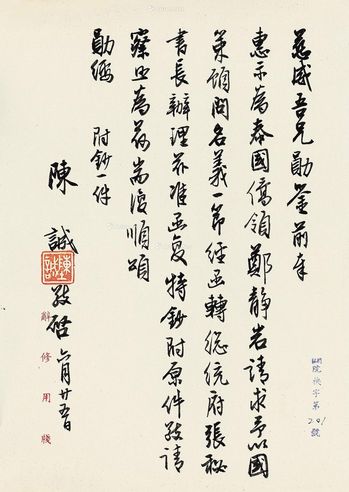 慈威吾兄勛鉴前奉
惠示為泰國僑領鄭静岩請求予以國
策顧問名義一節經函轉總統府張秘
書長辦理茲准函复特鈔附原件敬請
察照為荷耑復順頌
勛綏
附鈔一件
陳誠
敬啓 六月廿五日
辭修用牋
院機字第
201
號